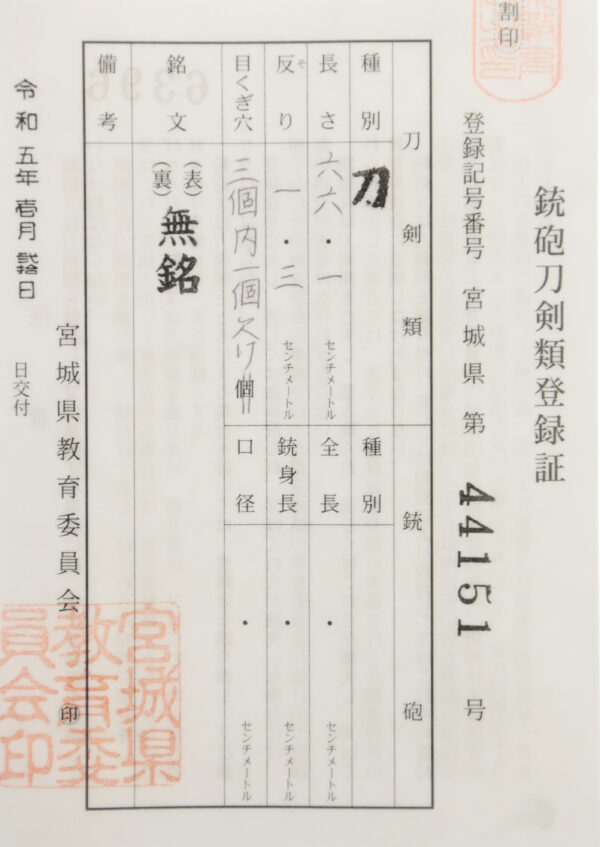 割印
銃砲刀剣類登録証
登録記号番号 宮城県 第 44151 号
刀剣類
銃砲
種別 刀
種別
長さ 六六・一 センチメートル
全長 ・ センチメートル
反り そ 一・三 センチメートル
銃身長 ・ センチメートル
目くぎ穴 三個内一個欠け 個
口径 ・ センチメートル
銘文 (表) (裏) 無銘
備考
宮城県教育委員会 印
令和五年壱月 日
日交付
宮城県
教育委
員会印